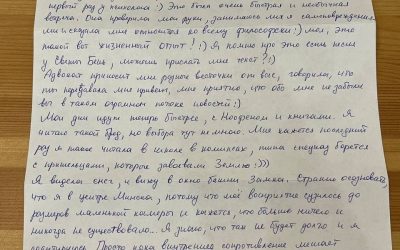 первый раз у психолога :) Это была очень быстрая и необычная
встреча. Она проверила мои руки, занимаюсь ли я самоповреждением
и сказала мне относиться ко всему философски :) мол, это
такой вот жизненный опыт! :) Я помню про это есть песня
у Светы Бень, можешь прислать мне текст? :)
Адвокат приносит мне радостные весточки от вас, говорит, что
ты передавала мне привет, мне приятно, что обо мне не забыли
вы в таком огромном потоке новостей :)
Мои дни идут теперь быстрее, с Надеждой и книгами. Я
читаю такой бред, но выбора тут не много. Мне кажется последний
раз я такое читала в школе в комиксах, типа спецназ борется
с пришельцами, которые завоевали Землю :)))
Я видела снег, и вижу в окно башни Замка. Странно осознавать,
что я в центре Минска, потому что моё восприятие сузилось до
размеров маленькой камеры и кажется, что больше ничего и
никогда не существовало. Я знаю, что так не будет долго и я
Просто пока внутреннее сопротивление мешает